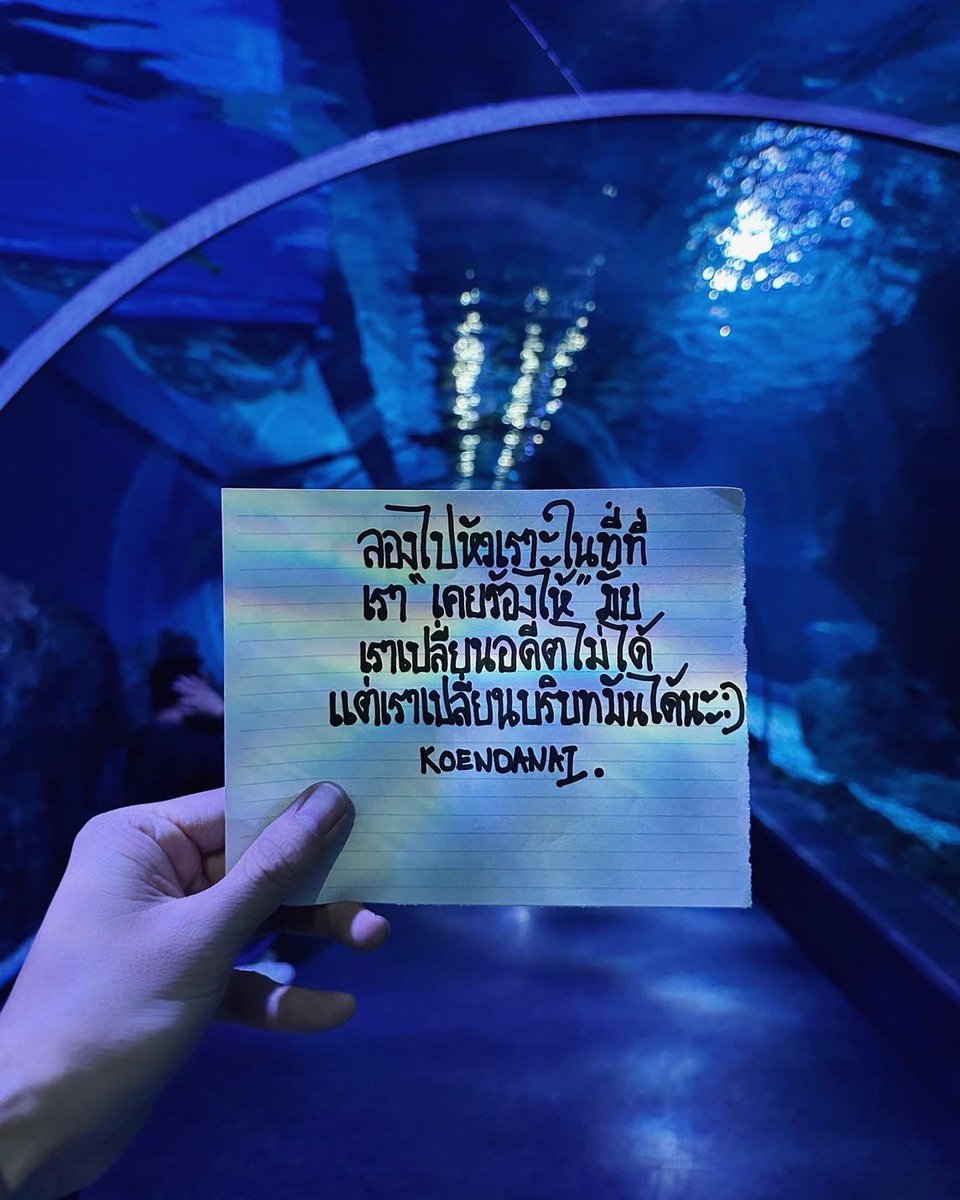 ลองไปหัวเราะในที่ที่
เรา "เคยร้องไห้" มั้ย
เราเปลี่ยนอดีตไม่ได้
แต่เราเปลี่ยนบริบทมันได้นะ:)
KOENDANAI.